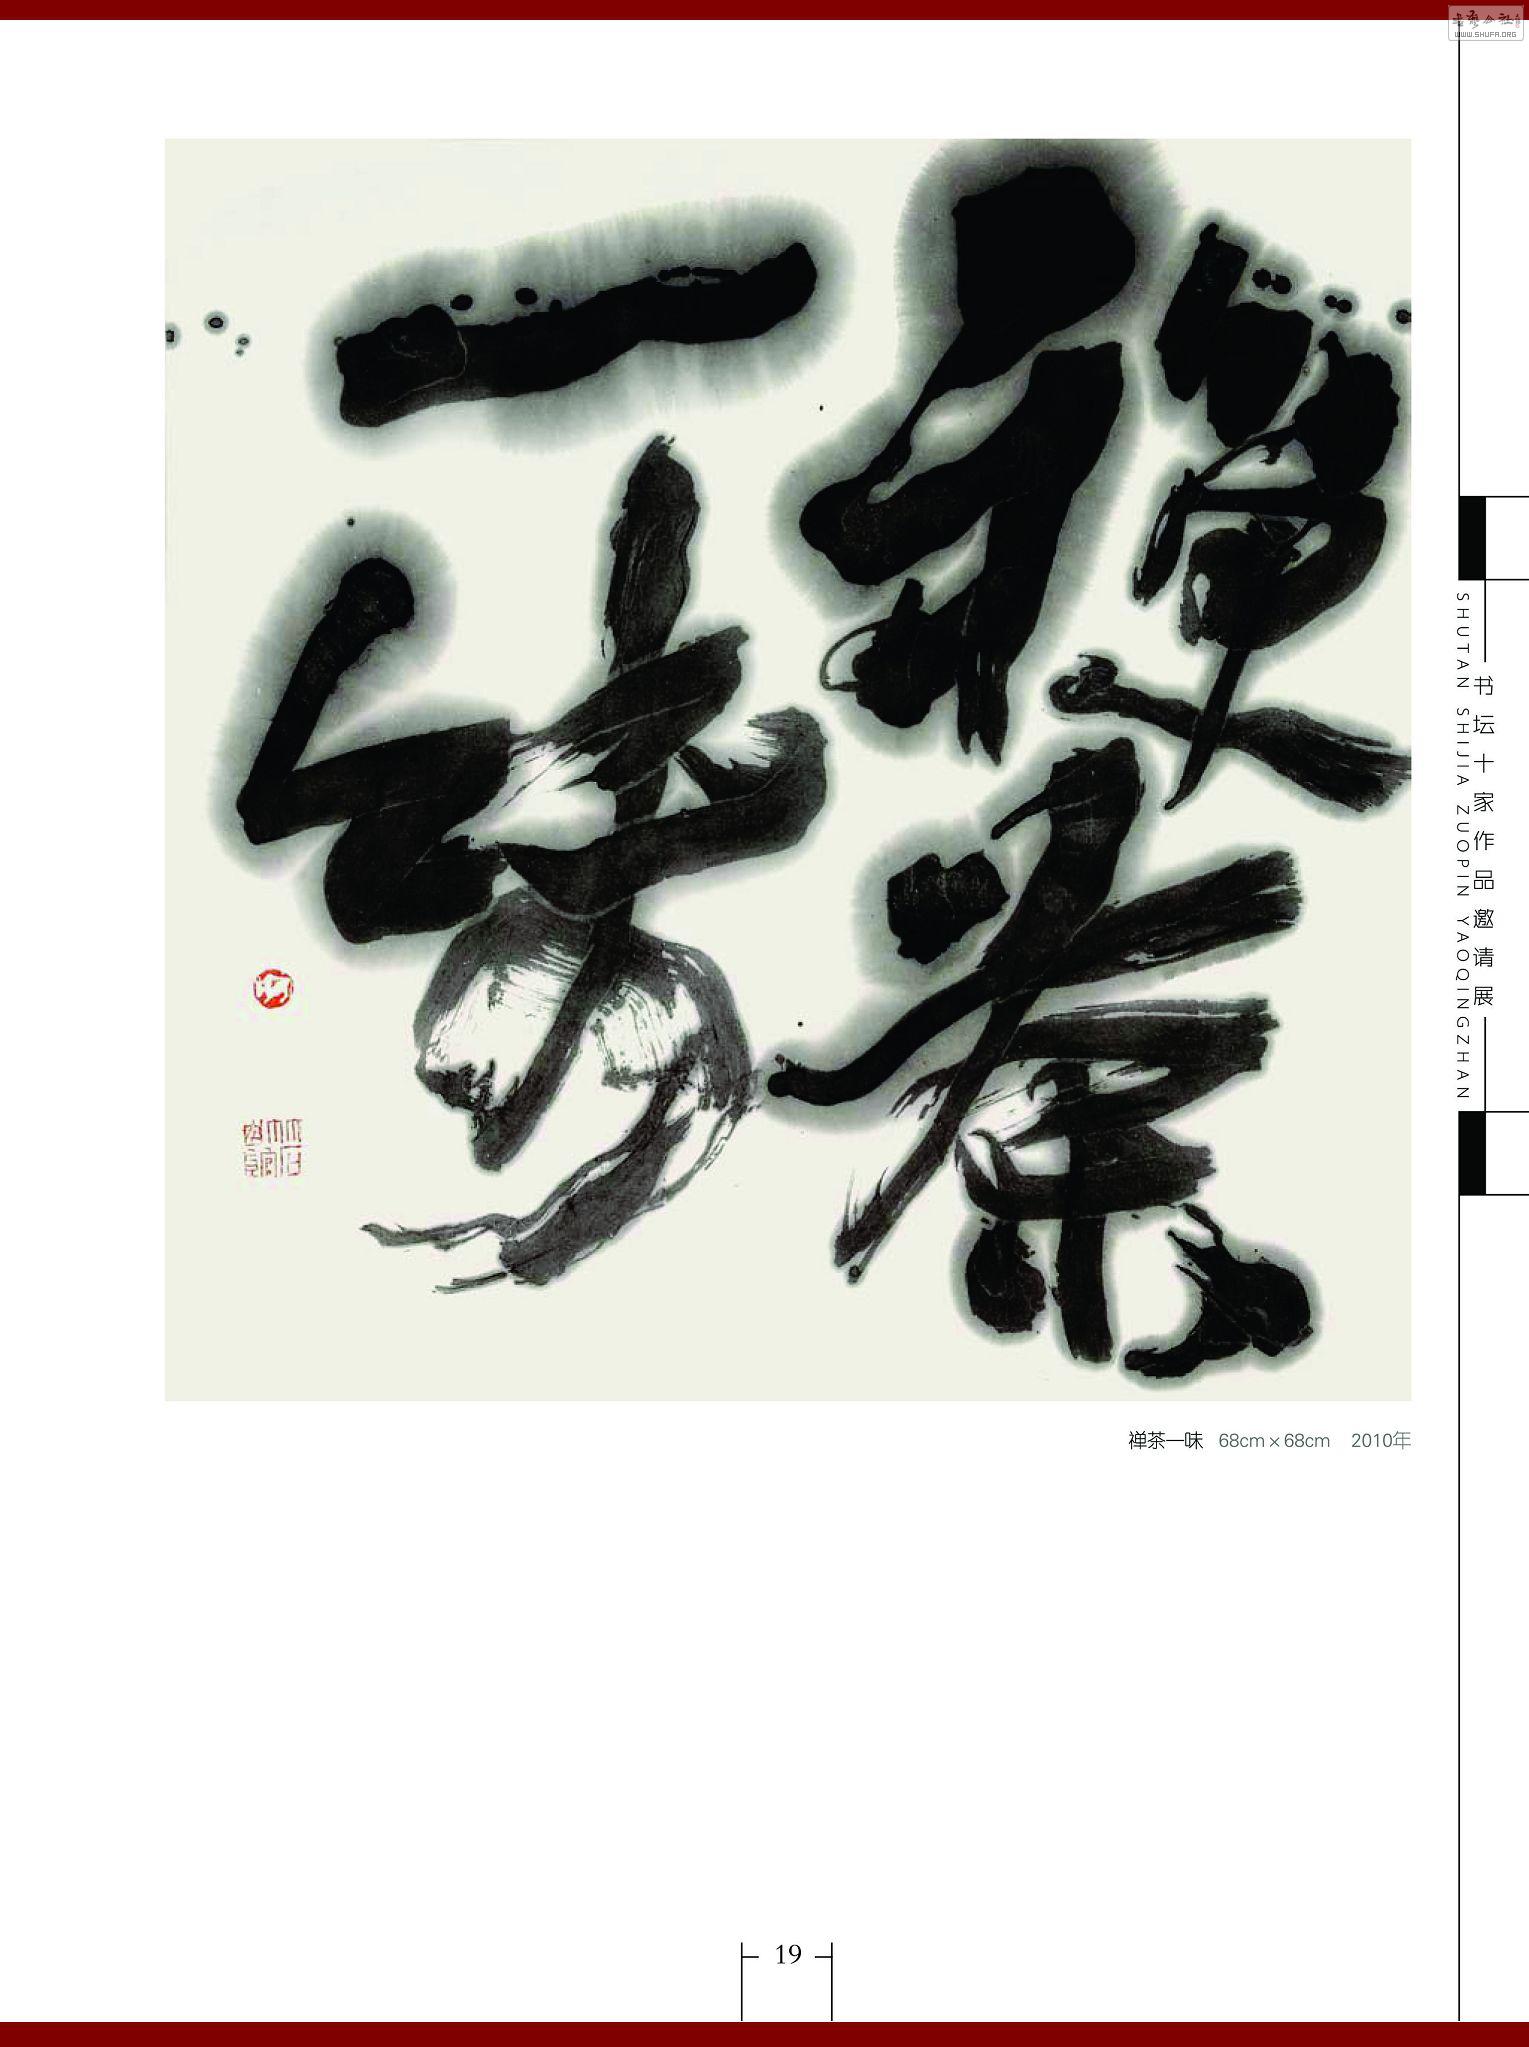 禪茶
一味
禅茶一味 68cm×68cm 2010年
书坛十家作品邀请展
SHUTAN SHIJIA ZUOPIN YAOQINGZHAN
19
WWW.SHUFA.ORG